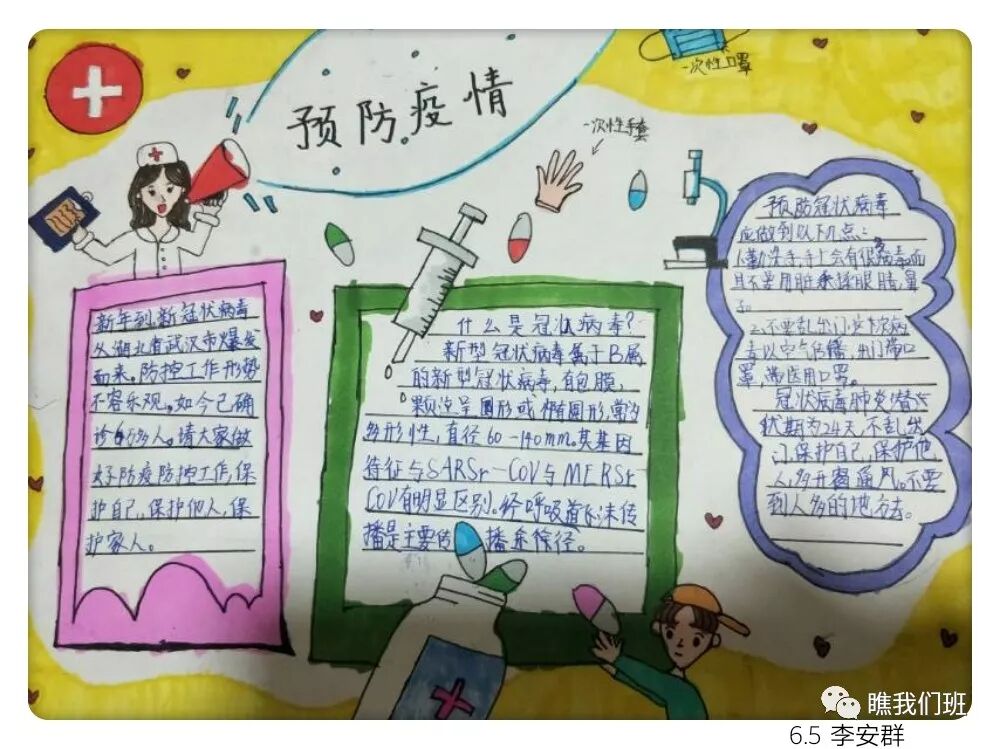 预防疫情
一次性口罩
一次性手套
新年到,新冠状病毒
从湖北省武汉市爆发
而来。防控工作形势
不容乐观。如今已确
诊6万多人。请大家做
好防疫防控工作,保
护自己,保护他人,保
护家人。
什么是冠状病毒?
新型冠状病毒属于B属
的新型冠状病毒,有包膜、
颗粒呈圆形或椭圆形,常为
多形性,直径60-140mm。其基因
特征与SARSr-COV与MERSr
COV有明显区别。经呼吸道飞沫传
播是主要传播途径。
预防冠状病毒
应做到以下几点:
1.勤洗手,手上会有很多病毒,而
且不要用脏手揉眼睛,鼻
子
2.不要乱出门,
毒以空气传播,出门带口
罩,带医用口罩。
冠状病毒肺炎潜
伏期为24天,不乱出
门,保护自己,保护他
人,多开窗通风。不要
到人多的地方去。
瞧我们班
6.5 李安群